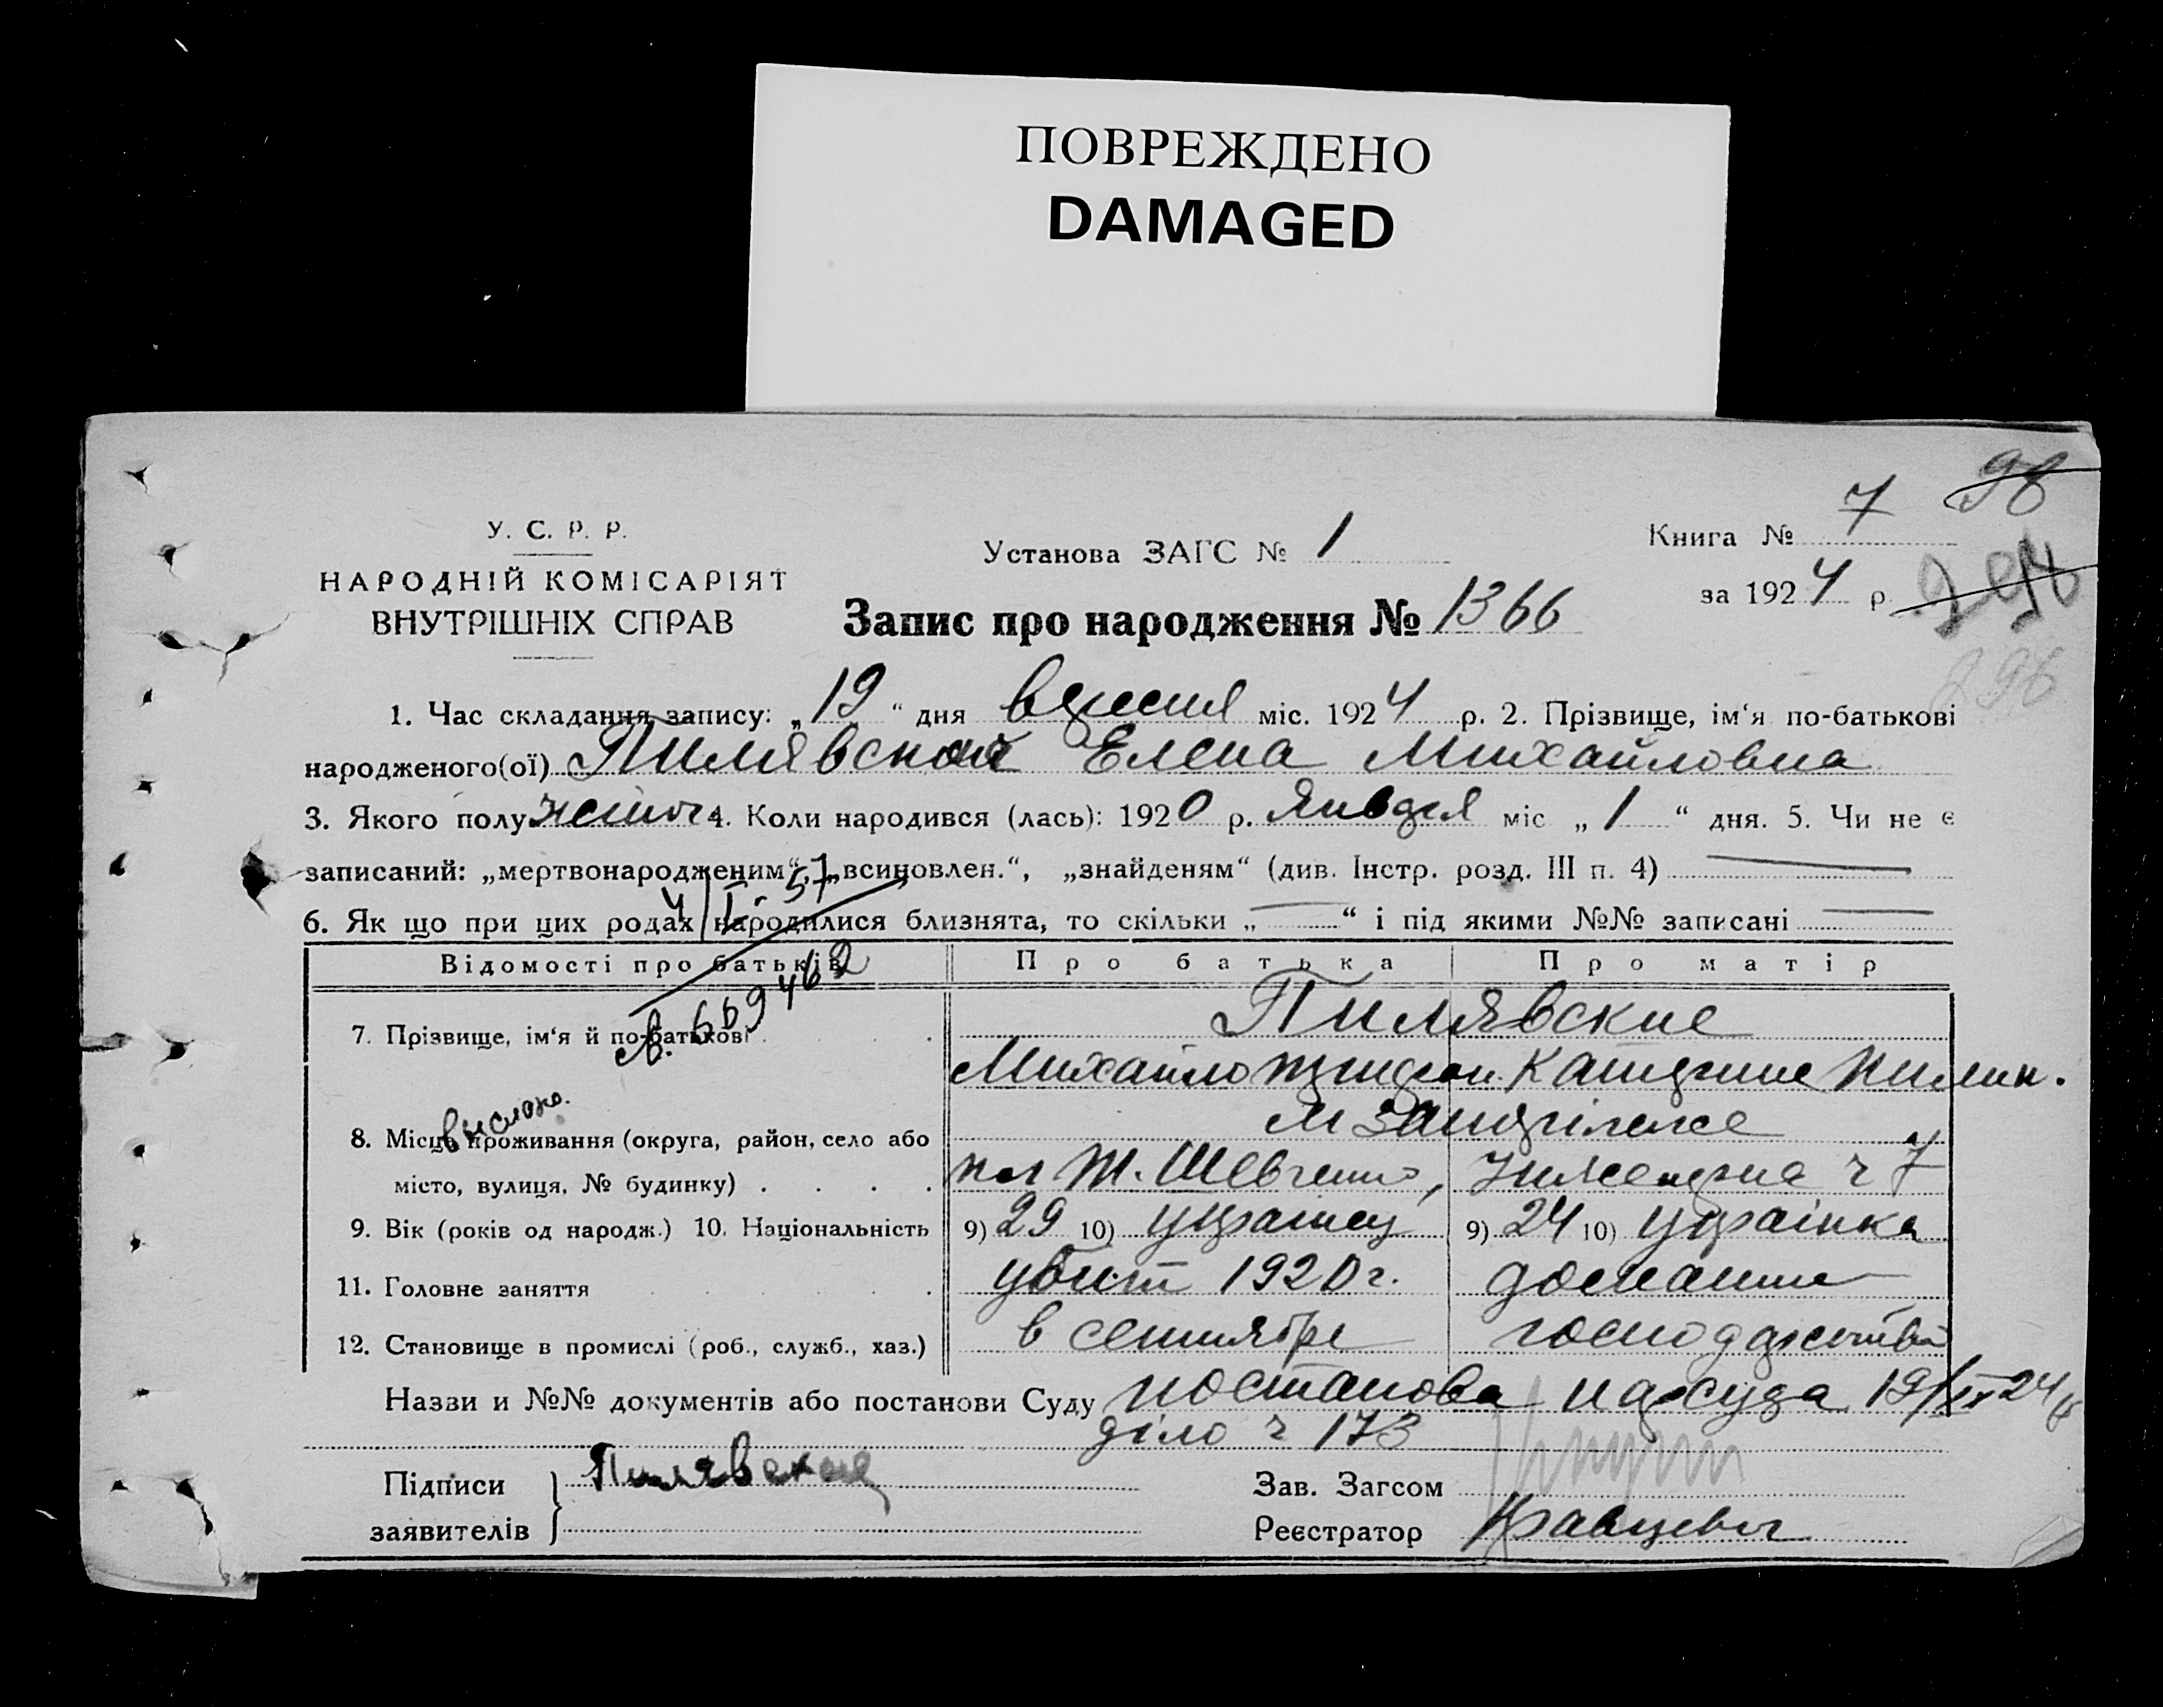 ПОВРЕЖДЕНО
DAMAGED
98
У. С. Р. Р.
НАРОДНІЙ КОМІСАРІЯТ
ВНУТРІШНІХ СПРАВ
Установа ЗАГС № 1
Книга № 7
за 1924 р.
Запис про народження № 1366
296
1. Час складання запису: „19“ дня вересня міс. 1924 р. 2. Прізвище, ім‘я по-батькові
народженого(ої) Пилявская Елена Михайловна
3. Якого полу жіноч 4. Коли народився (лась): 1920 р. января міс „1“ дня. 5. Чи не є
записаний: „мертвонародженим“, „всиновлен.“, „знайденям“ (див. Інстр. розд. III п. 4)
4/I-57
6. Як що при цих родах народилися близнята, то скільки „ “ і під якими №№ записані
Відомості про батьків Про батька Про матір
7. Прізвище, ім‘я й по-батькові Пилявские
Михайло Катерина
8. Місце проживання (округа, район, село або
місто, вулиця, № будинку) Шевченко, ч 7
9. Вік (років од народж.) 10. Національність 9) 29 10) украінец 9) 24 10) українка
11. Головне заняття убит 1920 г. домашне
12. Становище в промислі (роб., служб., хаз.) в сентябре господарство
Назви и №№ документів або постанови Суду постанова нарсуда 19/IX 24
діло ч 173
Підписи заявителів Пилявская
Зав. Загсом
Реєстратор Кравцевич